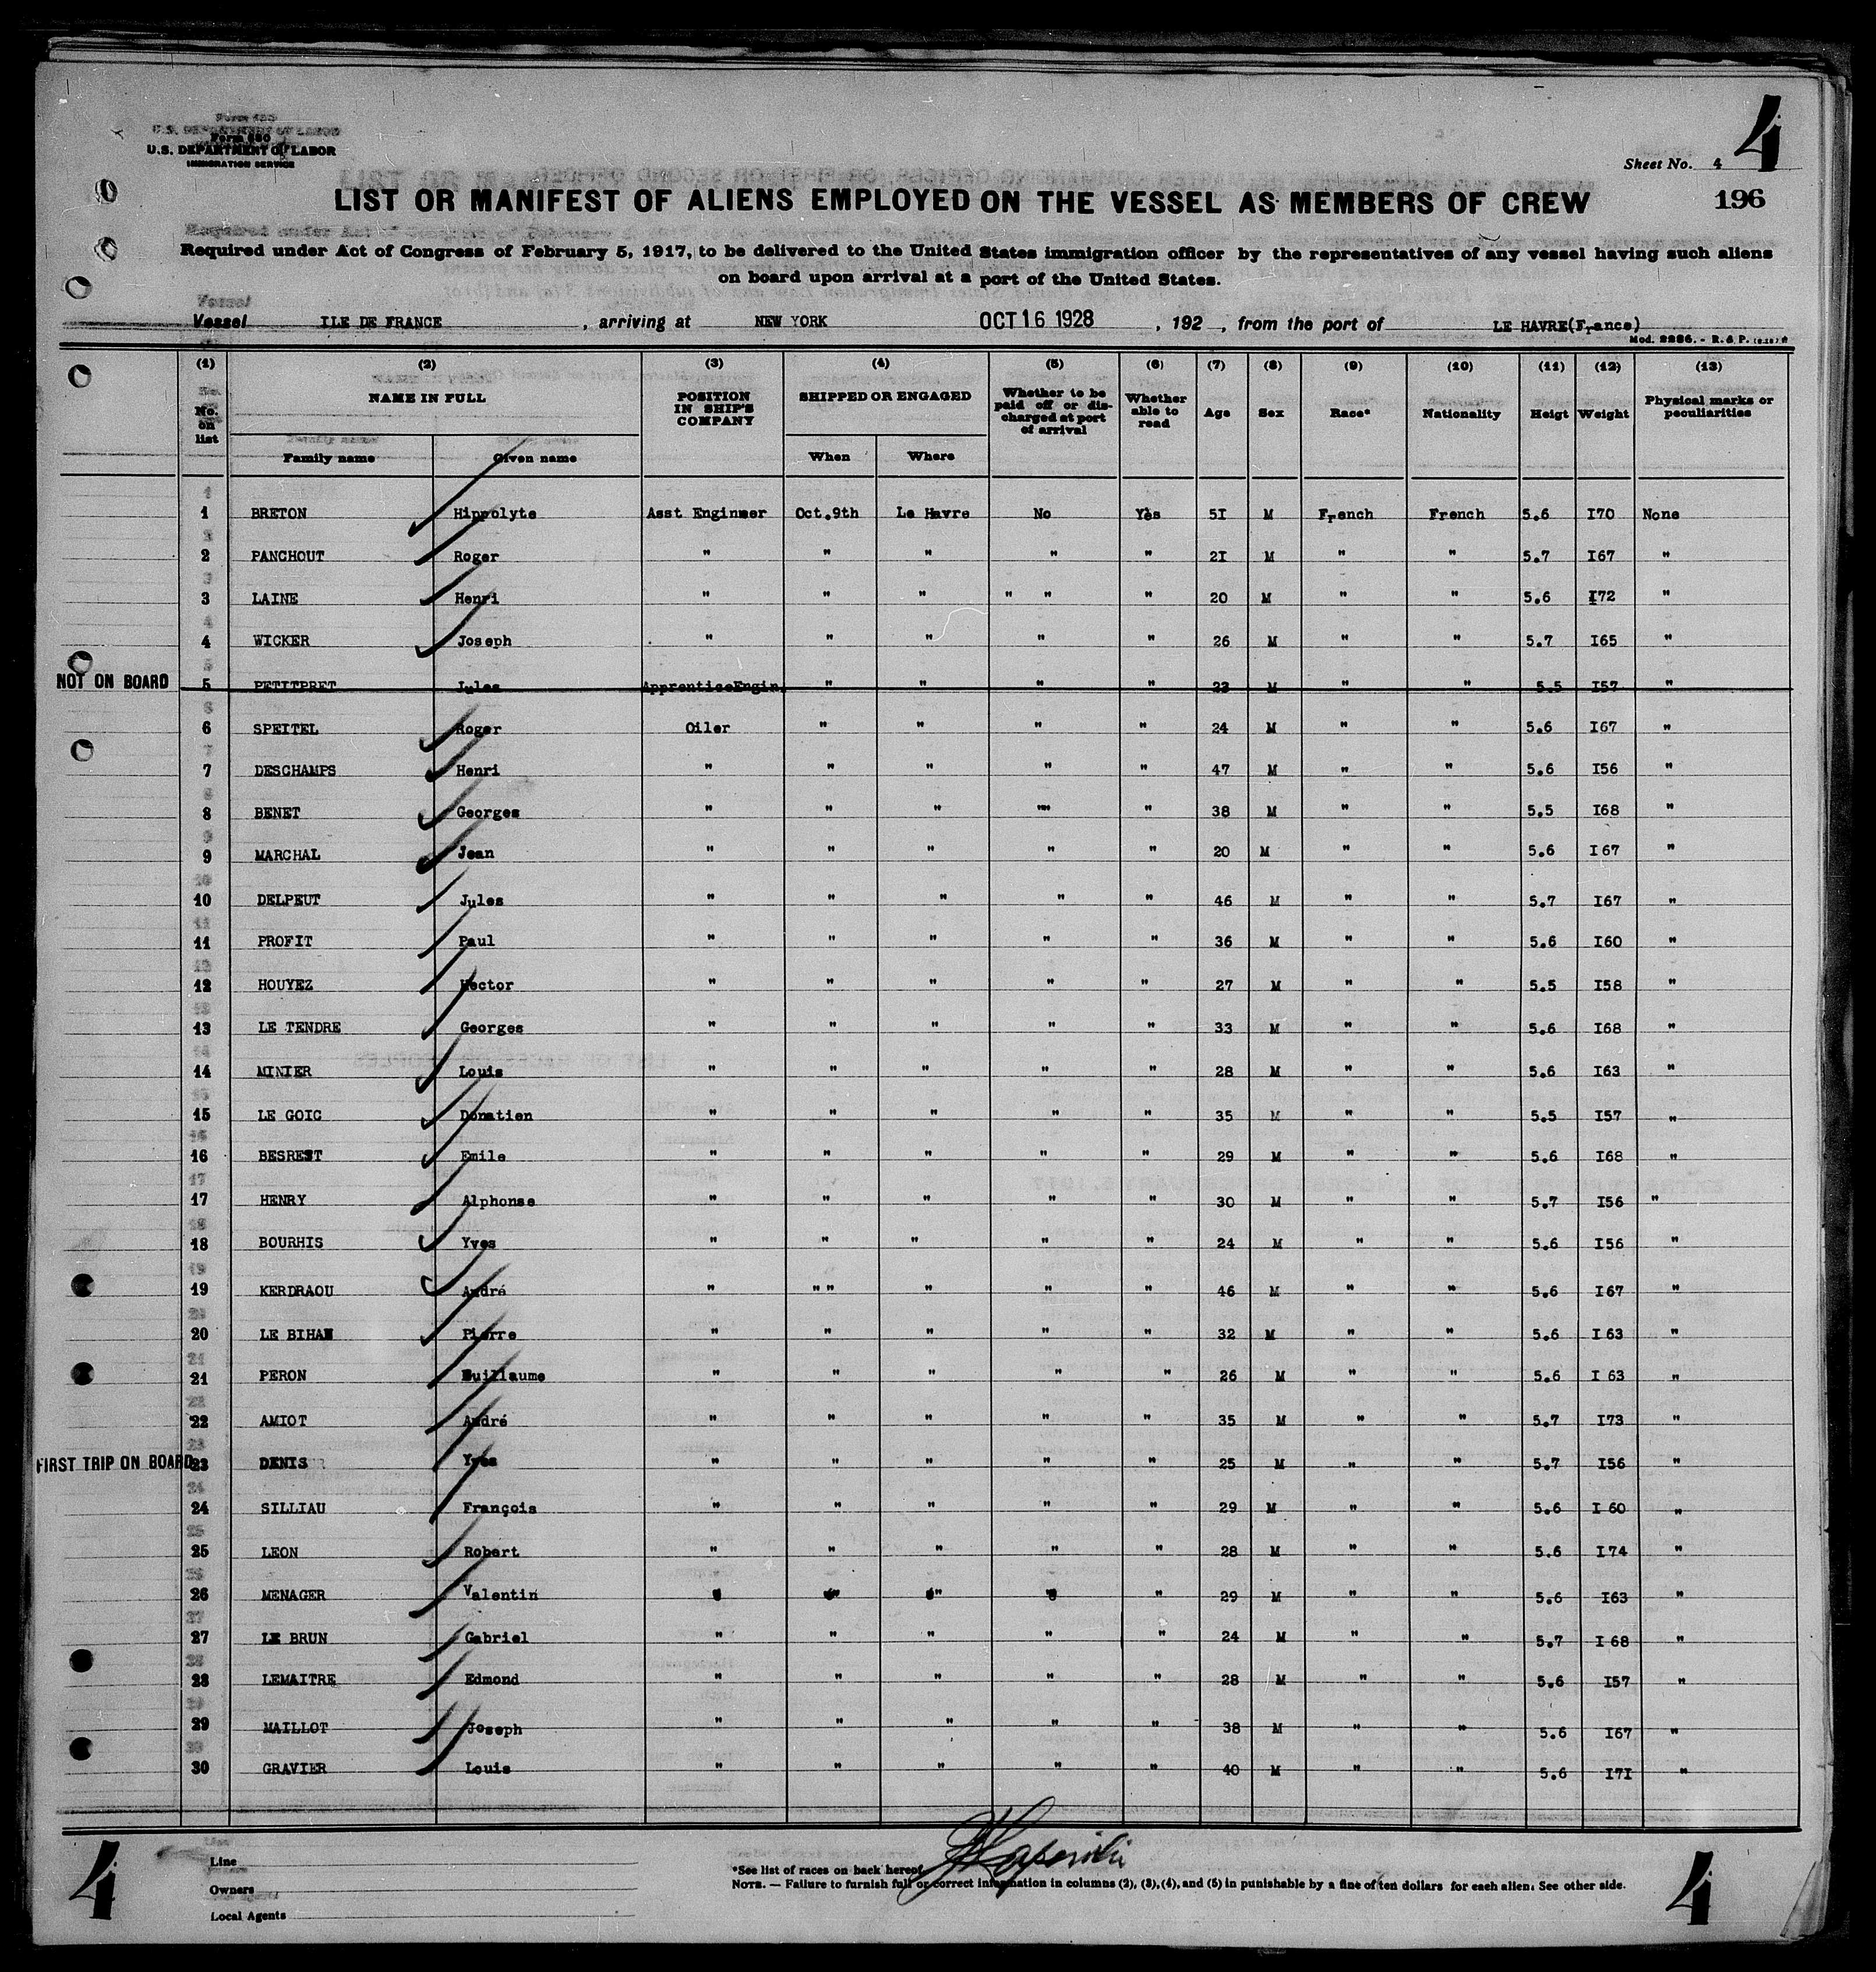 Form 680
U.S. DEPARTMENT OF LABOR
IMMIGRATION SERVICE
4
Sheet No. 4
196
LIST OR MANIFEST OF ALIENS EMPLOYED ON THE VESSEL AS MEMBERS OF CREW
Required under Act of Congress of February 5, 1917, to be delivered to the United States immigration officer by the representatives of any vessel having such aliens
on board upon arrival at a port of the United States.
Vessel ILE DE FRANCE , arriving at NEW YORK OCT 16 1928 , 192 , from the port of LE HAVRE(France)
Mod. 2286. - R. & P.
(1) (2) (3) (4) (5) (6) (7) (8) (9) (10) (11) (12) (13)
No. on list NAME IN FULL POSITION IN SHIP'S COMPANY SHIPPED OR ENGAGED Whether to be paid off or discharged at port of arrival Whether able to read Age Sex Race* Nationality Heigt Weight Physical marks or peculiarities
Family name Given name When Where
1 BRETON Hippolyte Asst Engineer Oct.9th Le Havre No Yès 5I M French French 5.6 I70 None
2 PANCHOUT Roger " " " " " 2I M " " 5.7 I67 "
3 LAINE Henri " " " " " " 20 M " " 5.6 I72 "
4 WICKER Joseph " " " " " 26 M " " 5.7 I65 "
NOT ON BOARD 5 PETITPRET Jules ApprenticeEngin. " " " " 23 M " " 5.5 I57 "
6 SPEITEL Roger Oiler " " " " 24 M " " 5.6 I67 "
7 DESCHAMPS Henri " " " " " 47 M " " 5.6 I56 "
8 BENET Georges " " " "" " 38 M " " 5.5 I68 "
9 MARCHAL Jean " " " " " 20 M " " 5.6 I67 "
10 DELPEUT Jules " " " " " 46 M " " 5.7 I67 "
11 PROFIT Paul " " " " " 36 M " " 5.6 I60 "
12 HOUYEZ Hector " " " " " 27 M " " 5.5 I58 "
13 LE TENDRE Georges " " " " " 33 M " " 5.6 I68 "
14 MINIER Louis " " " " " 28 M " " 5.6 I63 "
15 LE GOIC Donatien " " " " " 35 M " " 5.5 I57 "
16 BESREST Emile " " " " " 29 M " " 5.6 I68 "
17 HENRY Alphonse " " " " " 30 M " " 5.7 I56 "
18 BOURHIS Yves " " " " " 24 M " " 5.6 I56 "
19 KERDRAOU André " " " " " " 46 M " " 5.6 I67 "
20 LE BIHAN Pierre " " " " " 32 M " " 5.6 I63 "
21 PERON Guillaume " " " " " 26 M " " 5.6 I 63 "
22 AMIOT André " " " " " 35 M " " 5.7 I73 "
FIRST TRIP ON BOARD 23 DENIS Yves " " " " " 25 M " " 5.7 I56 "
24 SILLIAU François " " " " " 29 M " " 5.6 I 60 "
25 LEON Robert " " " " " 28 M " " 5.6 I74 "
26 MENAGER Valentin " " " " " 29 M " " 5.6 I63 "
27 LE BRUN Gabriel " " " " " 24 M " " 5.7 I 68 "
28 LEMAITRE Edmond " " " " " 28 M " " 5.6 I57 "
29 MAILLOT Joseph " " " " " 38 M " " 5.6 I67 "
30 GRAVIER Louis " " " " " 40 M " " 5.6 I7I "
4
Line
Owners
Local Agents
*See list of races on back hereof
NOTE. — Failure to furnish full or correct information in columns (2), (3), (4), and (5) in punishable by a fine of ten dollars for each alien. See other side.
4